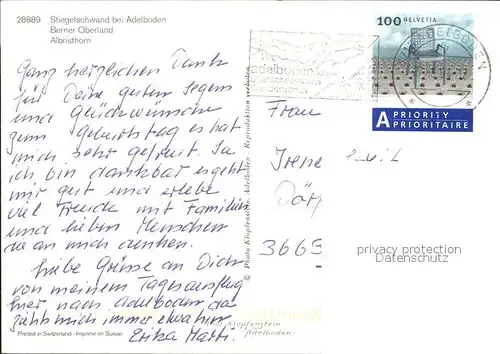 28889 Stiegelschwand bei Adelboden
Berner Oberland
Albristhorn
Ganz herzlichen Dank
für Deine guten Segens
und Glückwünsche
zum Geburtstag es hat
mich sehr gefreut. Ja
ich bin dankbar es geht
mir gut und erlebe
viel Freude mit Familien
und lieben Menschen
die an mich denken.
Liebe Grüsse an Dich
von meinem Tagesausflug
hier nach Adelboden da
zieht mich immer etwa hin
Erika Marti.
Printed in Switzerland - Imprimé en Suisse
© Photo Klopfenstein, Adelboden Reproduktion verboten
Klopfenstein
Adelboden
adelboden
100 HELVETIA
ADELBODEN
A PRIORITY
PRIORITAIRE
Frau
Irene
Dörf
3665
privacy protection
Datenschutz